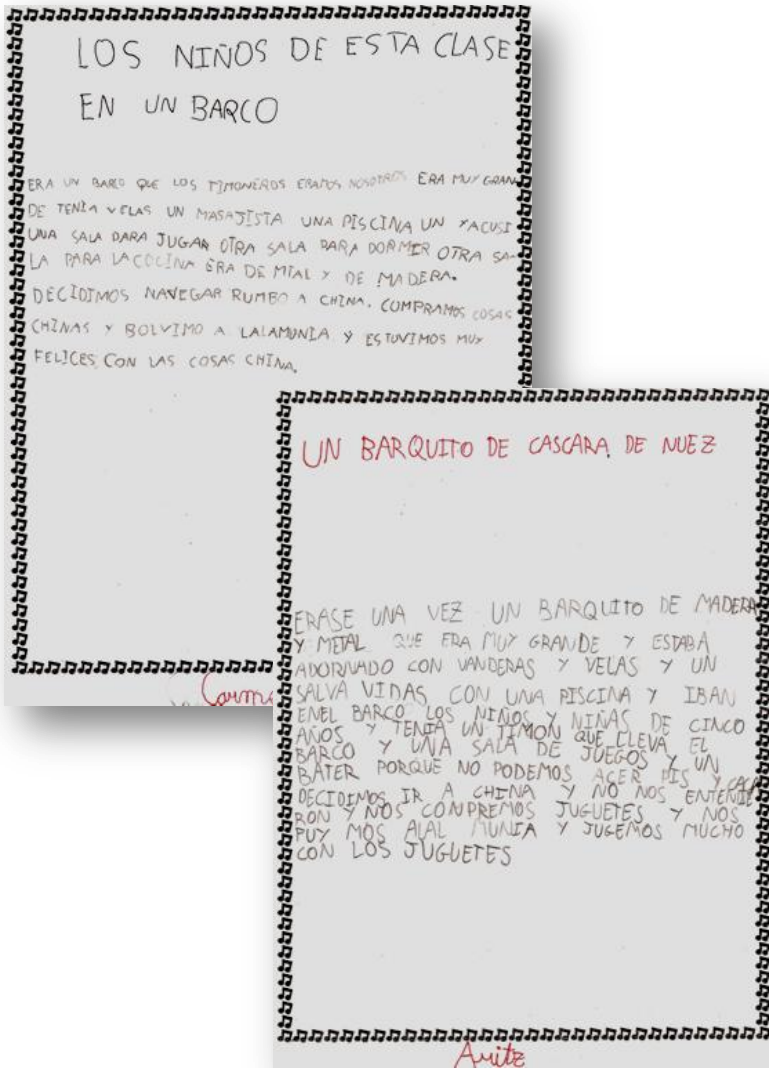 LOS NIÑOS DE ESTA CLASE
EN UN BARCO
ERA UN BARCO QUE LOS TIMONEROS ERAMOS NOSOTROS ERA MUY GRAN
DE TENIA VELAS UN MASAJISTA UNA PISCINA UN YACUSI
UNA SALA PARA JUGAR OTRA SALA PARA DORMIR OTRA SA
LA PARA LA COCINA ERA DE MTAL Y DE MADERA.
DECIDIMOS NAVEGAR RUMBO A CHINA. COMPRAMOS COSAS
CHINAS Y BOLVIMO A LALAMUNIA Y ESTUVIMOS MUY
FELICES CON LAS COSAS CHINA.
Carme
UN BARQUITO DE CASCARA DE NUEZ
ERASE UNA VEZ UN BARQUITO DE MADERA
Y METAL QUE ERA MUY GRANDE Y ESTABA
ADORNADO CON VANDERAS Y VELAS Y UN
SALVA VIDAS CON UNA PISCINA Y IBAN
ENEL BARCO LOS NIÑOS Y NIÑAS DE CINCO
AÑOS Y TENIA UN TIMON QUE LLEVA EL
BARCO Y UNA SALA DE JUEGOS Y UN
BATER PORQUE NO PODEMOS ACER PIS Y CACA
DECIDIMOS IR A CHINA Y NO NOS ENTENIE
RON Y NOS CONPREMOS JUGUETES Y NOS
PUY MOS ALAL MUNIA Y JUGEMOS MUCHO
CON LOS JUGUETES
Aritz